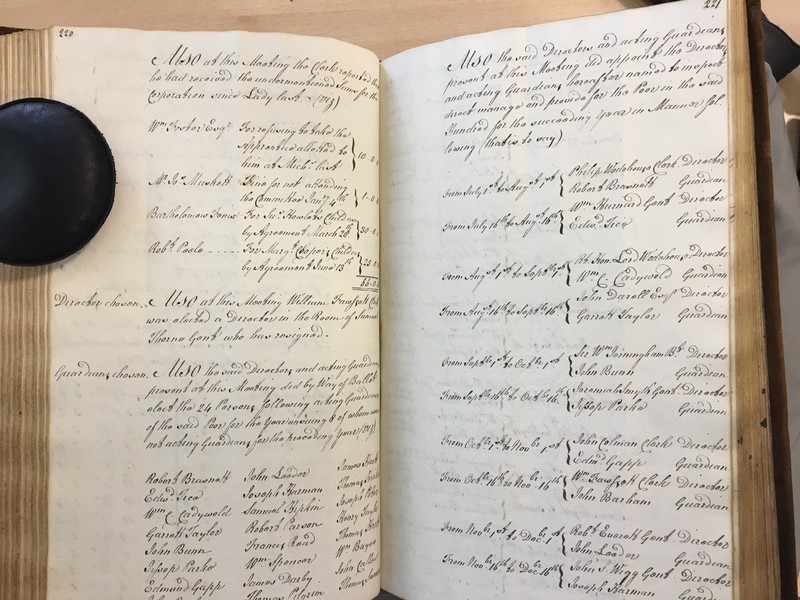 220
Also at this Meeting the Clerk reported that
he had received the undermentioned Sums for the
Corporation since Lady last (Vizt)
Wm Foster Esqr. For refusing to take the
Apprentice allotted to
him at Michs. last 10-0-0
Mr. Jos. Muskett Fine for not attending
the Committee Jany 4th 1-0-0
Bartholomew For Su. Howlets Child
by Agreement March 20th
Robt. Poole For Margt. Child
by Agreement June 13th
Director chosen. Also at this Meeting William Clerk
was elected a Director in the Room of Samuel
Thorne Gent who has resigned.
Guardians chosen. Also the said Directors and acting Guardians
present at this Meeting did by Way of Ballot
elect the 24 Persons following acting Guardians
of the said Poor for the Year ensuing 8 of whom were
not acting Guardians for the preceding Year (Vizt)
Robert Brasnett John Loader James
Edwd. Tice Joseph Harman Thomas
Wm C. Cadywold Samuel Kipkin Joseph
Garrett Taylor Robert Parson Henry
John Bunn Francis Road Thomas
Jessop Parke Wm Spencer Wm
Edmund Gapp James Darby John
Thomas Pilgrim Thomas
221
Also the said Directors and acting Guardians
present at this Meeting did appoint the Directors
and acting Guardians hereafter named to inspect
direct manage and provide for the Poor in the said
Hundred for the succeeding Year in Manner fol-
lowing (that is to say)
From July 1st to Augt. 1st Philip Wodehouse Clerk Director
Robert Brasnett Guardian
From July 16th to Augt. 16th Wm Gent Director
Edwd. Tice Guardian
From Augt. 1st to Septbr. 1st Rt. Hon. Lord Wodehouse Director
Wm C. Cadywold Guardian
From Augt. 16th to Septbr. 16th John Daroll Esqr Director
Garrett Taylor Guardian
From Septbr. 1st to Octbr. 1st Sir Wm Jerningham Bt. Director
John Bunn Guardian
From Septbr. 16th to Octbr. 16th Jeremiah Smyth Gent. Director
Jessop Parke Guardian
From Octbr. 1st to Novbr. 1st John Colman Clerk Director
Edmd. Gapp Guardian
From Octbr. 16th to Novbr. 16th Wm Clerk Director
John Barham Guardian
From Novbr. 1st to Decbr. 1st Robt. Everett Gent. Director
John Loader Guardian
From Novbr. 16th to Decbr. 16th John S. Wigg Gent. Director
Joseph Harman Guardian